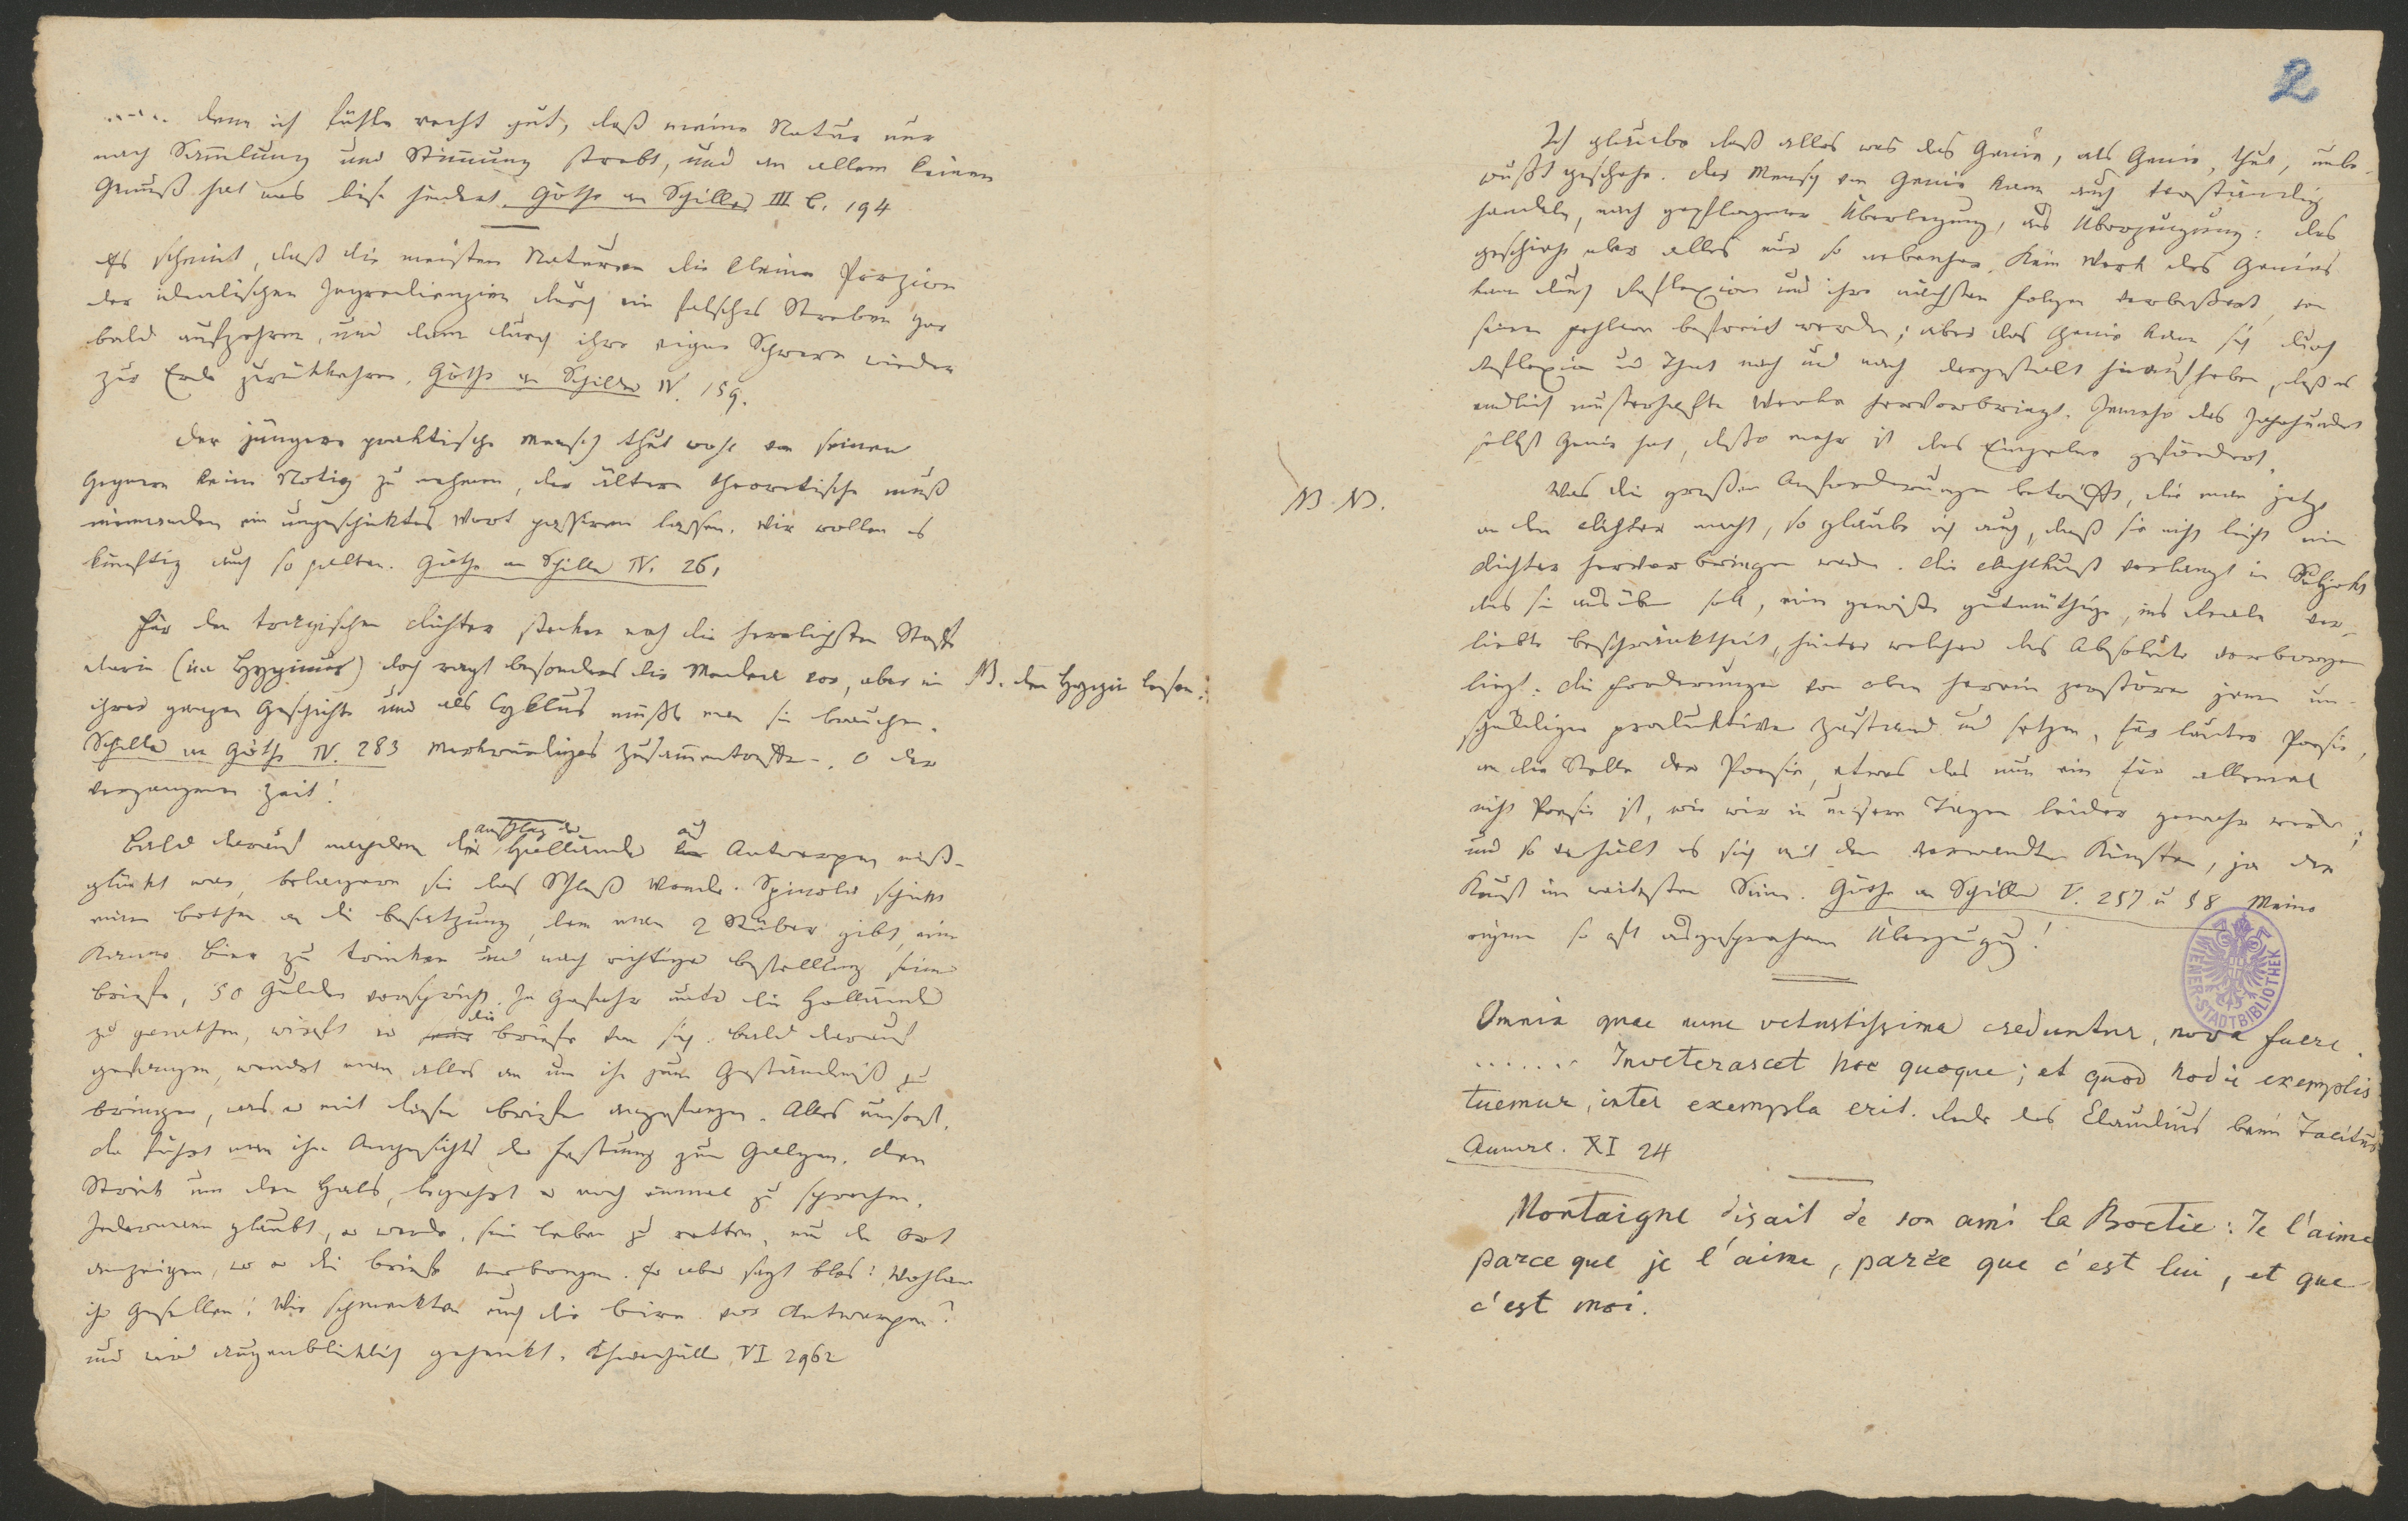 ..... denn ich fühle recht gut, daß meine Natur nur
nach Sammlung und Stimmung strebt, und an allem keinen
Genuß hat was diese hindert. Göthe an Schiller III B. 194
Es scheint, daß die meisten Naturen die kleine Porzion
der idealischen Ingredienzien durch ein falsches Streben gar
bald aufzehren, und dann durch ihre eigne Schwere wieder
zur Erde zurückkehren. Göthe an Schiller IV. 159.
Der jüngere praktische Mensch thut wohl von seinen
Gegnern keine Notiz zu nehmen, der ältere theoretische muß
niemanden ein ungeschicktes Wort passiren lassen. Wir wollen es
künftig auch so halten. Göthe an Schiller IV. 261
Für den tragischen Dichter stecken noch die herrlichsten Stoffe
darin (im Hyginus) doch ragt besonders die Medea vor, aber in
NB. den Hygin lesen.
ihrer ganzen Geschichte und als Cyklus müßte man sie brauchen.
Schiller an Göthe IV. 283 Merkwürdiges Zusammentreffen. O der
vergangenen Zeit!
Bald darauf nachdem der Anschlag der Holländer auf Antwerpen miß-
glückt war, belagern sie das Schloß Woude. Spinola schickt
einen Bothen an die Besatzung, dem man 2 Stüber gibt, eine
Kanne Bier zu trinken und nach richtiger Bestellung seiner
Briefe, 50 Gulden verspricht. In Gefahr unter die Holländer
zu gerathen, wirft er die Briefe von sich. Bald darauf
gefangen, wendet man alles an um ihn zum Geständniß zu
bringen, was er mit diesen Briefen angefangen. Alles umsonst.
Da führt man ihn Angesichts der Festung zum Galgen. Den
Strick um den Hals, begehrt er noch einmal zu sprechen.
Jedermann glaubt, er werde, sein Leben zu retten, nun den Ort
anzeigen, wo er die Briefe verborgen. Er aber sagt blos: Wohlan
ihr Gesellen! Wie schmeckten euch die Birn vor Antwerpen?
und wird augenblicklich gehenkt. Khevenhüller VI 2962
2
Ich glaube daß alles was das Genie, als Genie, thut, unbe-
wußt geschehe. Der Mensch von Genie kann auch verständig
handeln, nach gepflogener Überlegung, aus Überzeugung: das
geschieht aber alles nur so nebenher. Kein Werk des Genies
kann durch Reflexion und ihre nächsten Folgen verbessert, von
seinen Fehlern befreit werden; aber das Genie kann sich durch
Reflexion und That nach und nach dergestalt hinaufheben, daß es
endlich musterhafte Werke hervorbringt. Jemehr das Jahrhundert
selbst Genie hat, desto mehr ist das Einzelne gefördert.
NB NB.
Was die großen Anforderungen betrifft, die man jetzt
an den Dichter macht, so glaube ich auch, daß sie nicht leicht einen
Dichter hervorbringen werden. Die Dichtkunst verlangt im Subjekt
das sie ausüben soll, eine gewisse gutmüthige, ins Reale ver-
liebte Beschränktheit, hinter welcher das Absolute verborgen
liegt. Die Forderungen von oben herein zerstören jenen un-
schuldigen produktiven Zustand und setzen, für lauter Poesie,
an die Stelle der Poesie, etwas das nun ein für allemal
nicht Poesie ist, wie wir in unsern Tagen leider gewahr werden;
und so verhält es sich mit den verwandten Künsten, ja der
Kunst im weitesten Sinne. Göthe an Schiller V. 257 u 58 Meine
eigene so oft ausgesprochene Überzeugung!
WIENER-STADTBIBLIOTHEK
Omnia quae nunc vetustissima creduntur, nova fuere.
....... Inveterascet hoc quoque; et quod hodie exemplis
tuemur, inter exempla erit. Rede des Claudius beim Tacitus
Annal. XI 24
Montaigne disait de son ami la Boetie: Je l'aime
parce que je l'aime, parce que c'est lui, et que
c'est moi.